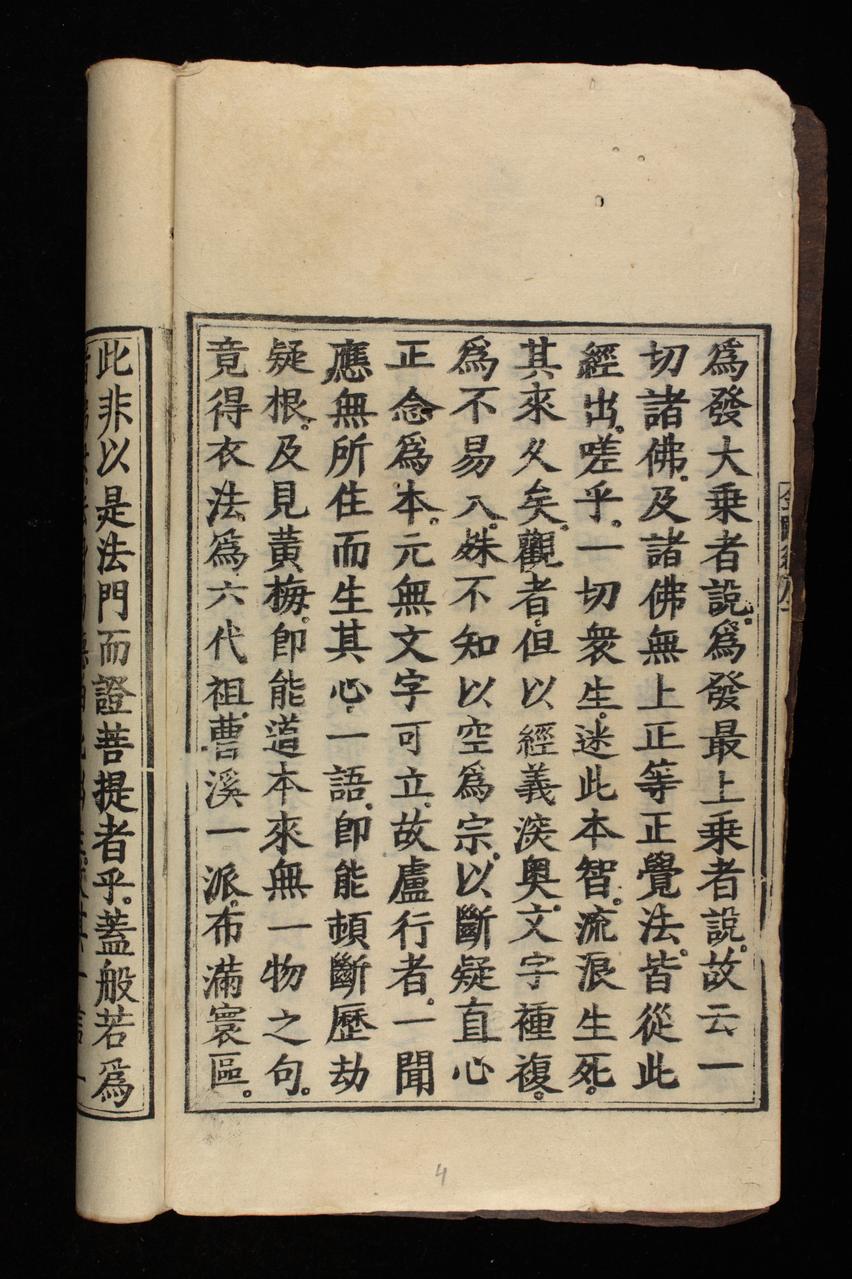 爲發大乗者說。爲發最上乗者說。故云一
切諸佛。及諸佛無上正等正覺法。皆從此
經出。嗟乎。一切衆生。迷此本智。流浪生死。
其來久矣。觀者。但以經義淡奥。文字種複。
爲不易入。姝不知以空爲宗。以斷疑直心
正念爲本。元無文字可立。故盧行者。一聞
應無所住而生其心。一語。卽能頓斷歷劫
疑根。及見黃梅。卽能道本來無一物之句。
竟得衣法。爲六代祖。曹溪一派。布滿寰區。
此非以是法門而證菩提者乎。蓋般若爲
4